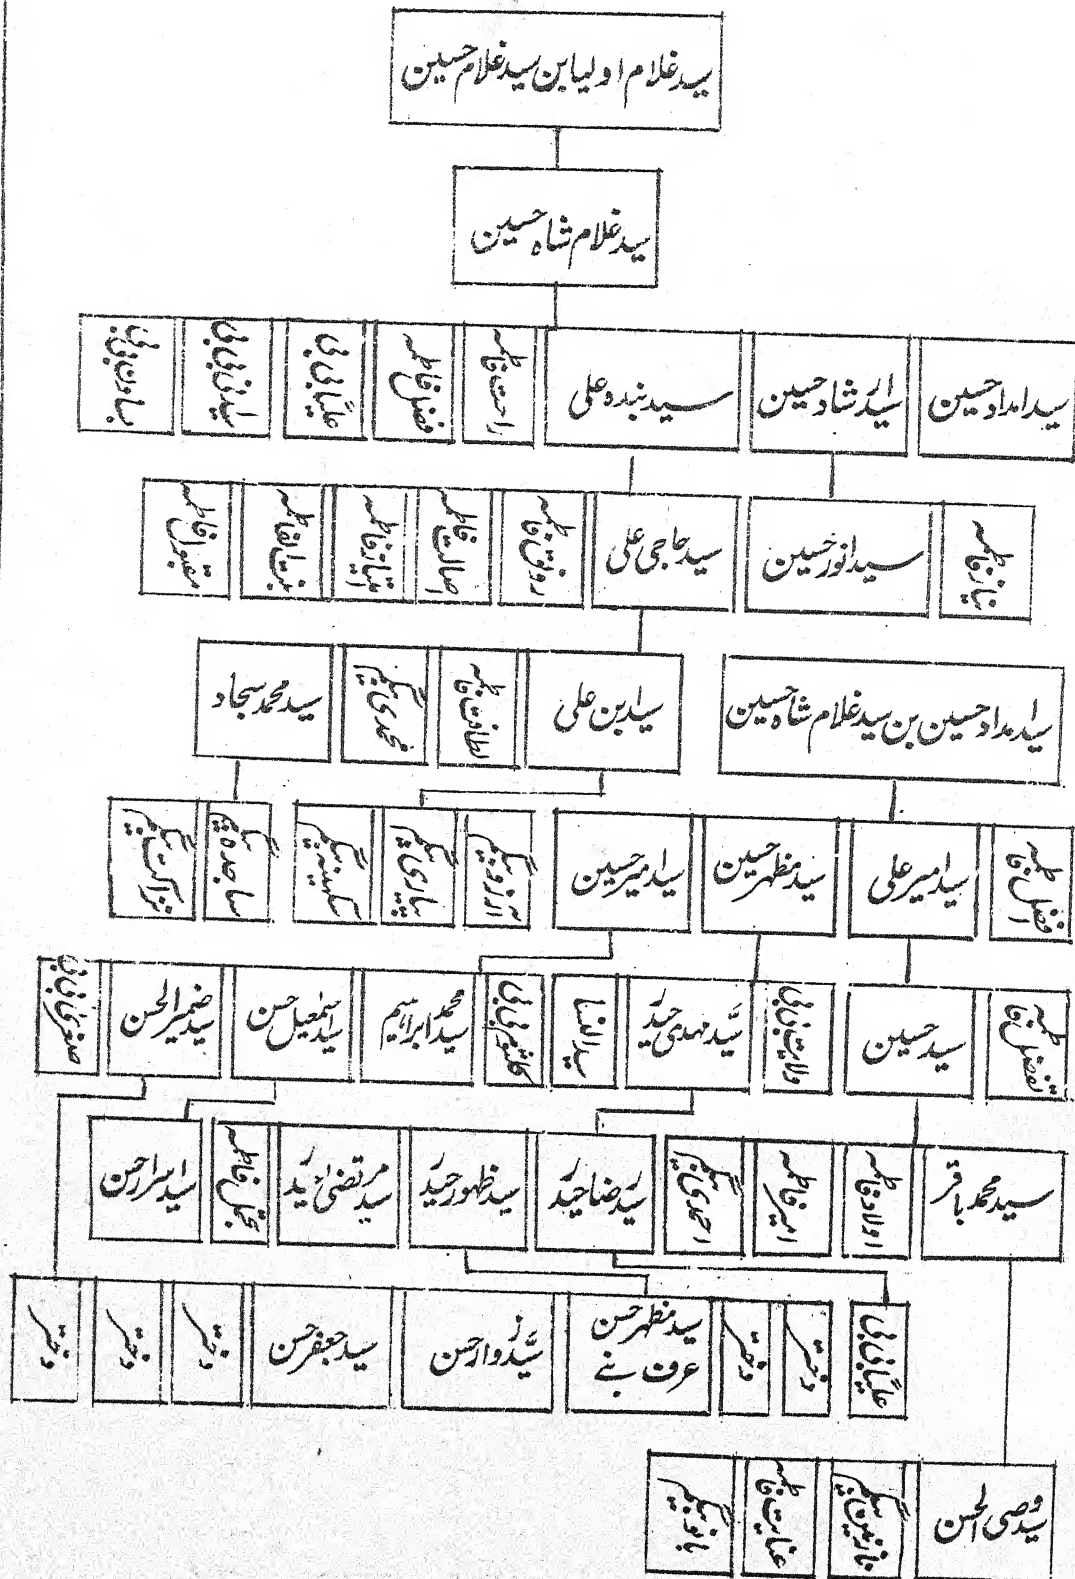 سید غلام اولیا بن سید غلام حسین
سید غلام شاہ حسین
سید امداد حسین
سید ارشاد حسین
سید بندہ علی
راحت فاطمہ
فضل فاطمہ
علیا بی بی
بساون بی بی
نیاز فاطمہ
سید انور حسین
سید حاجی علی
رونق فاطمہ
اصالت فاطمہ
امتیاز فاطمہ
بنت الفاطمہ
مقبول فاطمہ
سید امداد حسین بن سید غلام شاہ حسین
سید ابن علی
لطافت فاطمہ
محمدی بیگم
سید محمد سجاد
افضل فاطمہ
سید امیر علی
سید مظہر حسین
سید امیر حسین
آرزو بیگم
پیاری بیگم
سکینہ بیگم
ساجدہ بیگم
نزاکت بیگم
تفضل فاطمہ
سید حسین
ولایت بی بی
سید مہدی حیدر
سید النسا
کلثوم بی بی
سید محمد ابراہیم
سید اسمعیل حسن
سید ضمیر الحسن
صغریٰ بی بی
سید محمد باقر
اولاد فاطمہ
امیر فاطمہ
احمدی بیگم
سید رضا حیدر
سید ظہور حیدر
سید مرتضیٰ حیدر
تجمل فاطمہ
سید اسرار حسن
علیا بی بی
دختر
دختر
سید مظہر حسن
عرف بنے
سید زوار حسن
سید جعفر حسن
دختر
دختر
دختر
سید وصی الحسن
نازنین بیگم
عنایت فاطمہ
بانو بیگم